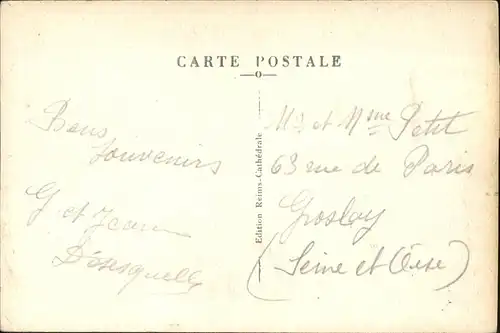 CARTE POSTALE
Bons
Souvenirs
G et Jeanne
Edition Reims-Cathédrale
Mr et Mme Petit
63 rue de Paris
Groslay
(Seine et Oise)